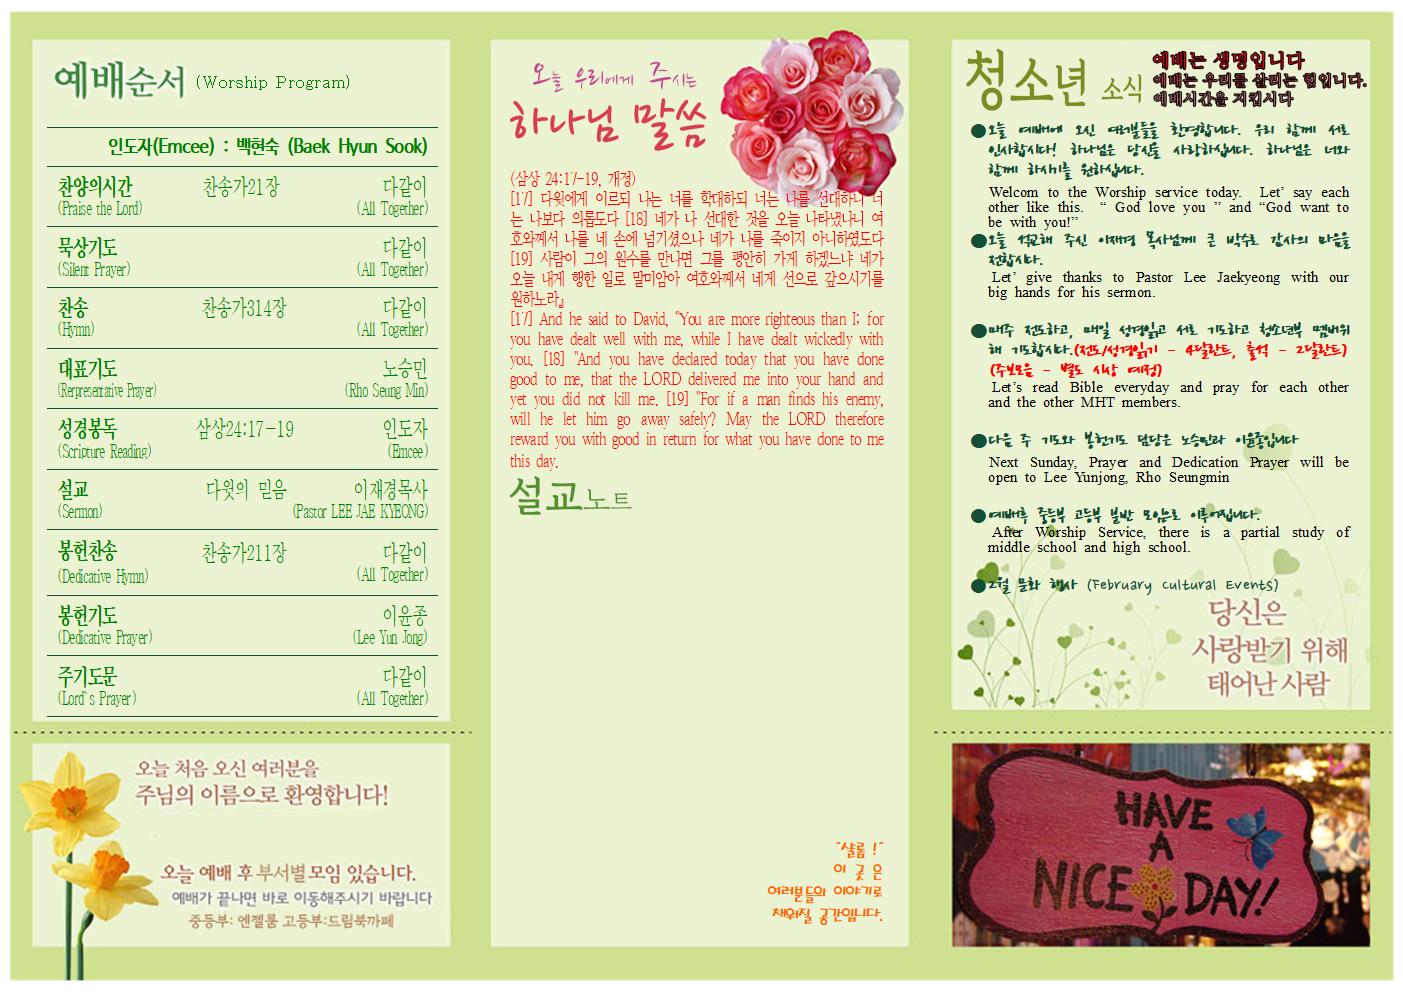 예배순서 (Worship Program)
인도자(Emcee) : 백현숙 (Baek Hyun Sook)
찬양의시간 찬송가21장 다같이
(Praise the Lord) (All Together)
묵상기도 다같이
(Silent Prayer) (All Together)
찬송 찬송가314장 다같이
(Hymn) (All Together)
대표기도 노승민
(Rerpresentative Prayer) (Rho Seung Min)
성경봉독 삼상24:17-19 인도자
(Scripture Reading) (Emcee)
설교 다윗의 믿음 이재경목사
(Sermon) (Pastor LEE JAE KYEONG)
봉헌찬송 찬송가211장 다같이
(Dedicative Hymn) (All Together)
봉헌기도 이윤종
(Dedicative Prayer) (Lee Yun Jong)
주기도문 다같이
(Lord`s Prayer) (All Together)
오늘 처음 오신 여러분을
주님의 이름으로 환영합니다!
오늘 예배 후 부서별 모임 있습니다.
예배가 끝나면 바로 이동해주시기 바랍니다
중등부: 엔젤룸 고등부:드림북까페
오늘 우리에게 주시는
하나님 말씀
(삼상 24:17-19, 개정)
[17] 다윗에게 이르되 나는 너를 학대하되 너는 나를 선대하니 너
는 나보다 의롭도다 [18] 네가 나 선대한 것을 오늘 나타냈나니 여
호와께서 나를 네 손에 넘기셨으나 네가 나를 죽이지 아니하였도다
[19] 사람이 그의 원수를 만나면 그를 평안히 가게 하겠느냐 네가
오늘 내게 행한 일로 말미암아 여호와께서 네게 선으로 갚으시기를
원하노라』
[17] And he said to David, "You are more righteous than I; for
you have dealt well with me, while I have dealt wickedly with
you. [18] "And you have declared today that you have done
good to me, that the LORD delivered me into your hand and
yet you did not kill me. [19] "For if a man finds his enemy,
will he let him go away safely? May the LORD therefore
reward you with good in return for what you have done to me
this day.
설교노트
"샬롬 !"
이 곳 은
여러분들의 이야기로
채워질 공간입니다.
청소년 소식
예배는 생명입니다
예배는 우리를 살리는 힘입니다.
예배시간을 지킵시다
●오늘 예배에 오신 여러분들을 환영합니다. 우리 함께 서로
인사합시다! 하나님은 당신을 사랑하십니다. 하나님은 너와
함께 하시기를 원하십니다.
Welcom to the Worship service today. Let’ say each
other like this. “ God love you ” and “God want to
be with you!”
●오늘 설교해 주신 이재경 목사님께 큰 박수로 감사의 마음을
전합시다.
Let’ give thanks to Pastor Lee Jaekyeong with our
big hands for his sermon.
●매주 전도하고, 매일 성경읽고 서로 기도하고 청소년부 멤버위
해 기도합시다.(전도/성경읽기 - 4달란트, 출석 - 2달란트)
(주보모음 - 별도 시상 예정)
Let’s read Bible everyday and pray for each other
and the other MHT members.
●다음 주 기도와 봉헌기도 담당은 노승민과 이윤종입니다
Next Sunday, Prayer and Dedication Prayer will be
open to Lee Yunjong, Rho Seungmin
●예배후 중등부 고등부 분반 모임으로 이루어집니다.
After Worship Service, there is a partial study of
middle school and high school.
●2월 문화 행사 (February Cultural Events)
당신은
사랑받기 위해
태어난 사람
HAVE
A
NICE DAY!